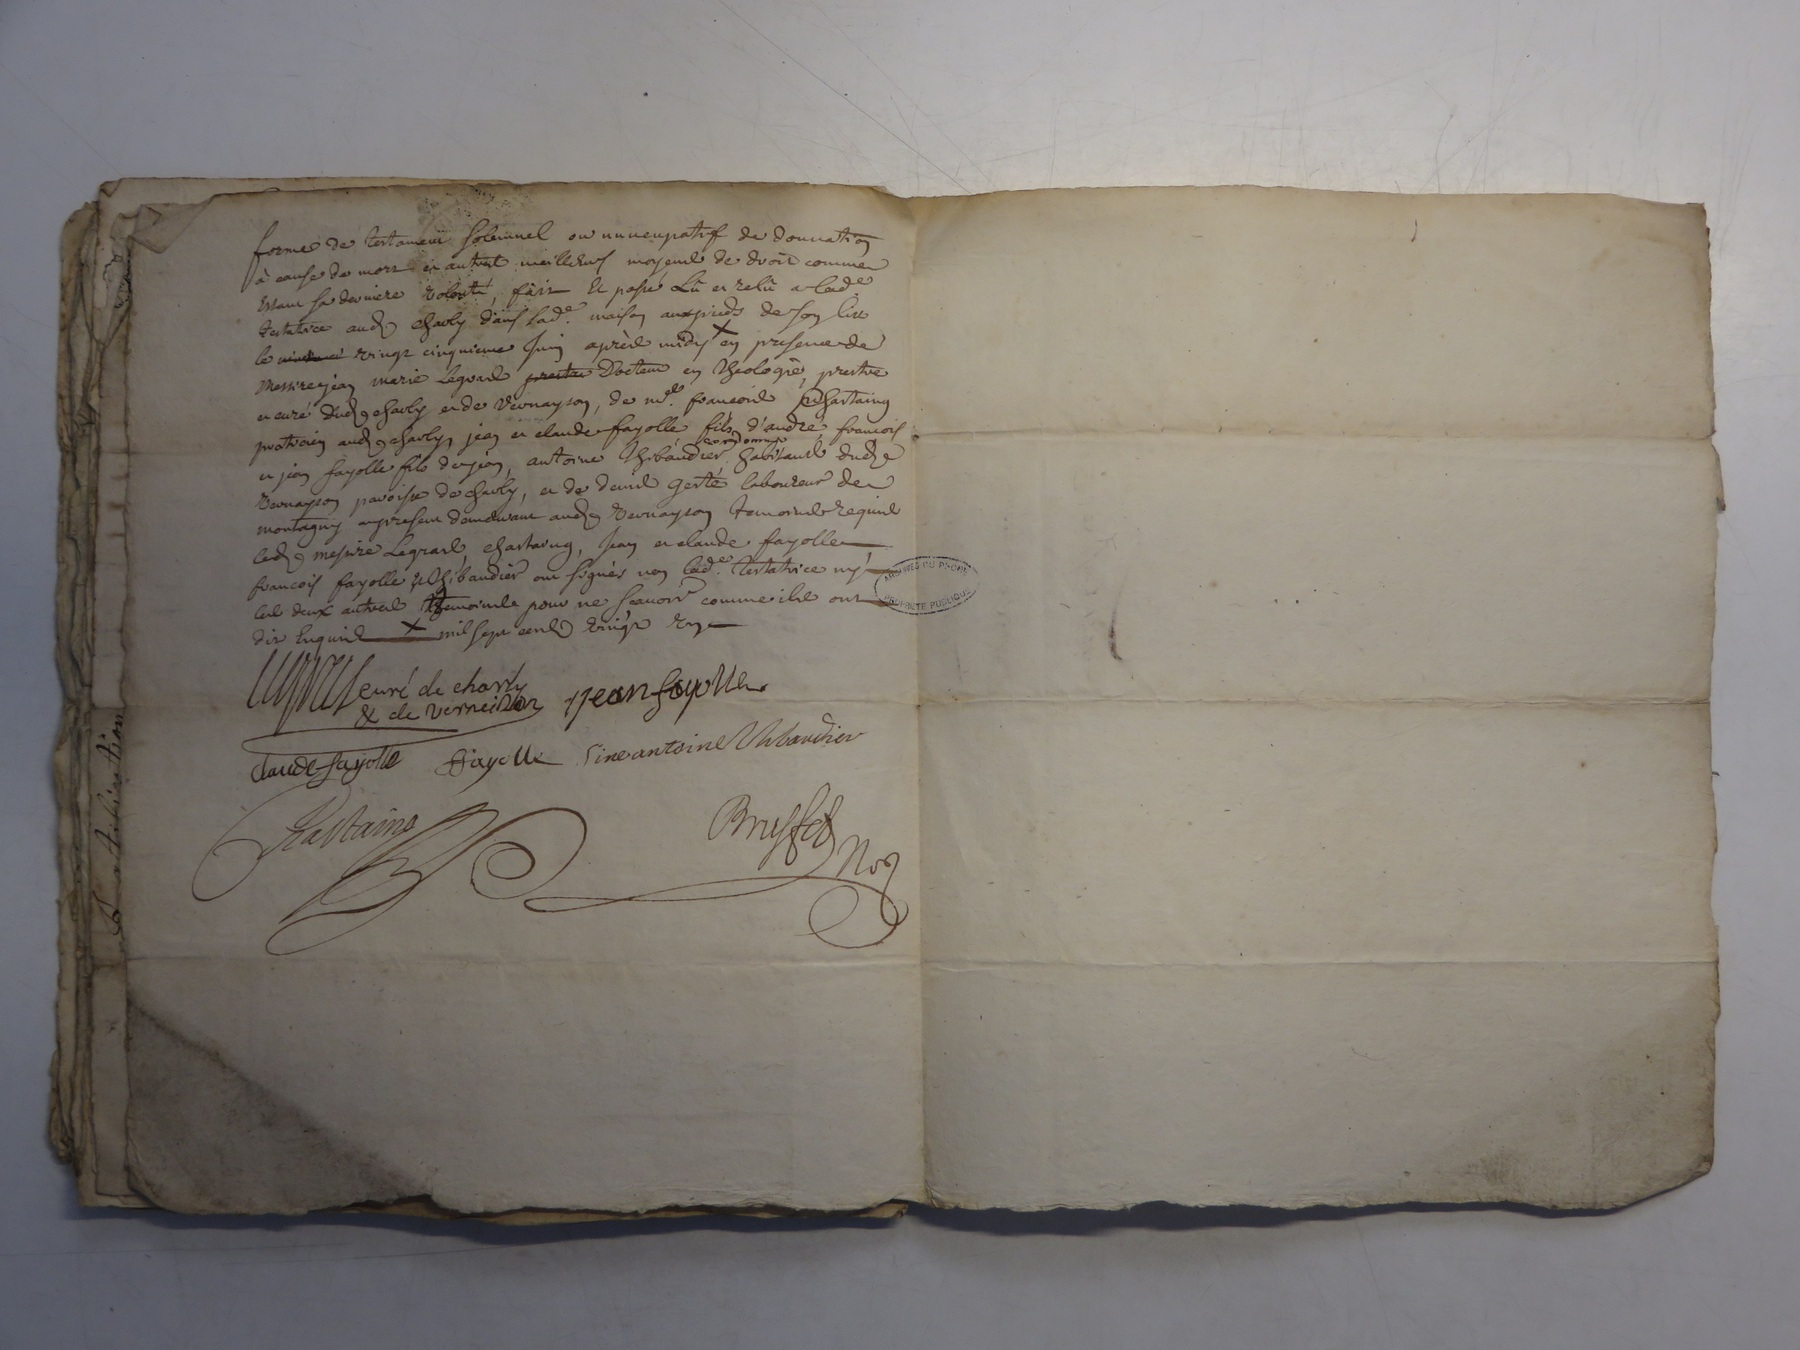 forme de testament solemnel ou nuncupatif de donnation
à cause de mort et autres meilleurs moyens de droit comme
estant sa derniere volonté, fait et passé Lû et relû a lade
testatrice aud charly dans lade maison aux pieds de son lict
le vingt cinquieme Juin après midy X en presence de
Messire jean marie Legrard Docteur en theologie, prestre
et curé dud charly et de Vernayson, de me francois Chastaing
praticien aud charly, jean et claude fayolle fils d'andre, francois
et jean fayolle fils de jean, antoine Thibaudier habitants dud
Vernayson paroisse de charly, et de denis laboureur de
montagny a present demeurant aud Vernayson temoins requis
led messire Legrard, chastaing, Jean et claude fayolle
francois fayolle et Thibaudier ont signés non lade testatrice ny
les deux autres temoins pour ne scavoir comme ils ont
dit Enquis X mil sept cents vingt
curé de charly
& de verneison jean fayolle
Claude fayolle ffayolle antoine thibaudier
Chastaing
Brusset
Nore
ARCHIVES DU RHONE
PROPRIETE PUBLIQUE